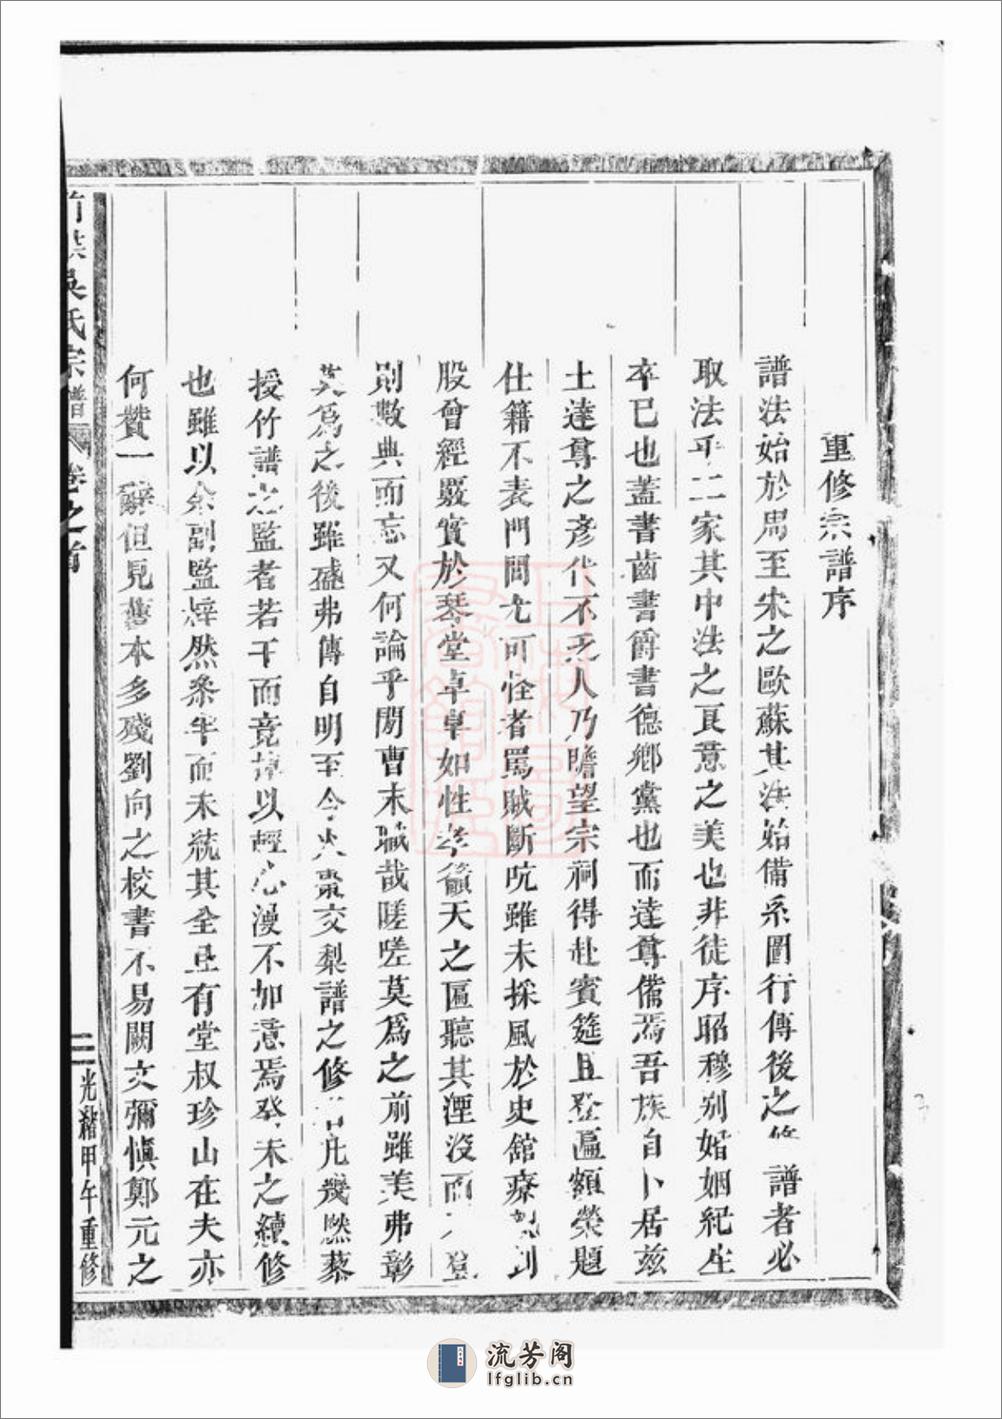 重修宗譜序
譜法始於周至宋之歐蘇其法始備系圖行傳後之修譜者必
取法乎二家其中法之良意之美也非徒序昭穆别婚姻紀生
卒已也蓋書齒書爵書德鄉黨也而達尊備焉吾族自卜居茲
土達尊之彥代不乏人乃瞻望宗祠得赴賓筵且登匾額榮題
仕籍不表門閭尤可怪者罵賊斷吭雖未採風於史舘療親刲
股曾經覈實於琴堂卓卓如性孝籲天之匾聽其湮沒而不登
則數典而忘又何論乎閒曹末職哉嗟嗟莫為之前雖美弗彰
莫為之後雖盛弗傳自明至今火棗交梨譜之修者凡幾燃藜
授竹譜之監者若干而竟以輕心漫不加意焉癸未之續修
也雖以余副監肄然參半而未統其全且有堂叔珍山在夫亦
何贊一辭但見舊本多殘劉向之校書不易闕文彌慎鄭元之
吳氏宗譜 卷之首 二 光緒甲午重修
流芳阁
lfglib.cn